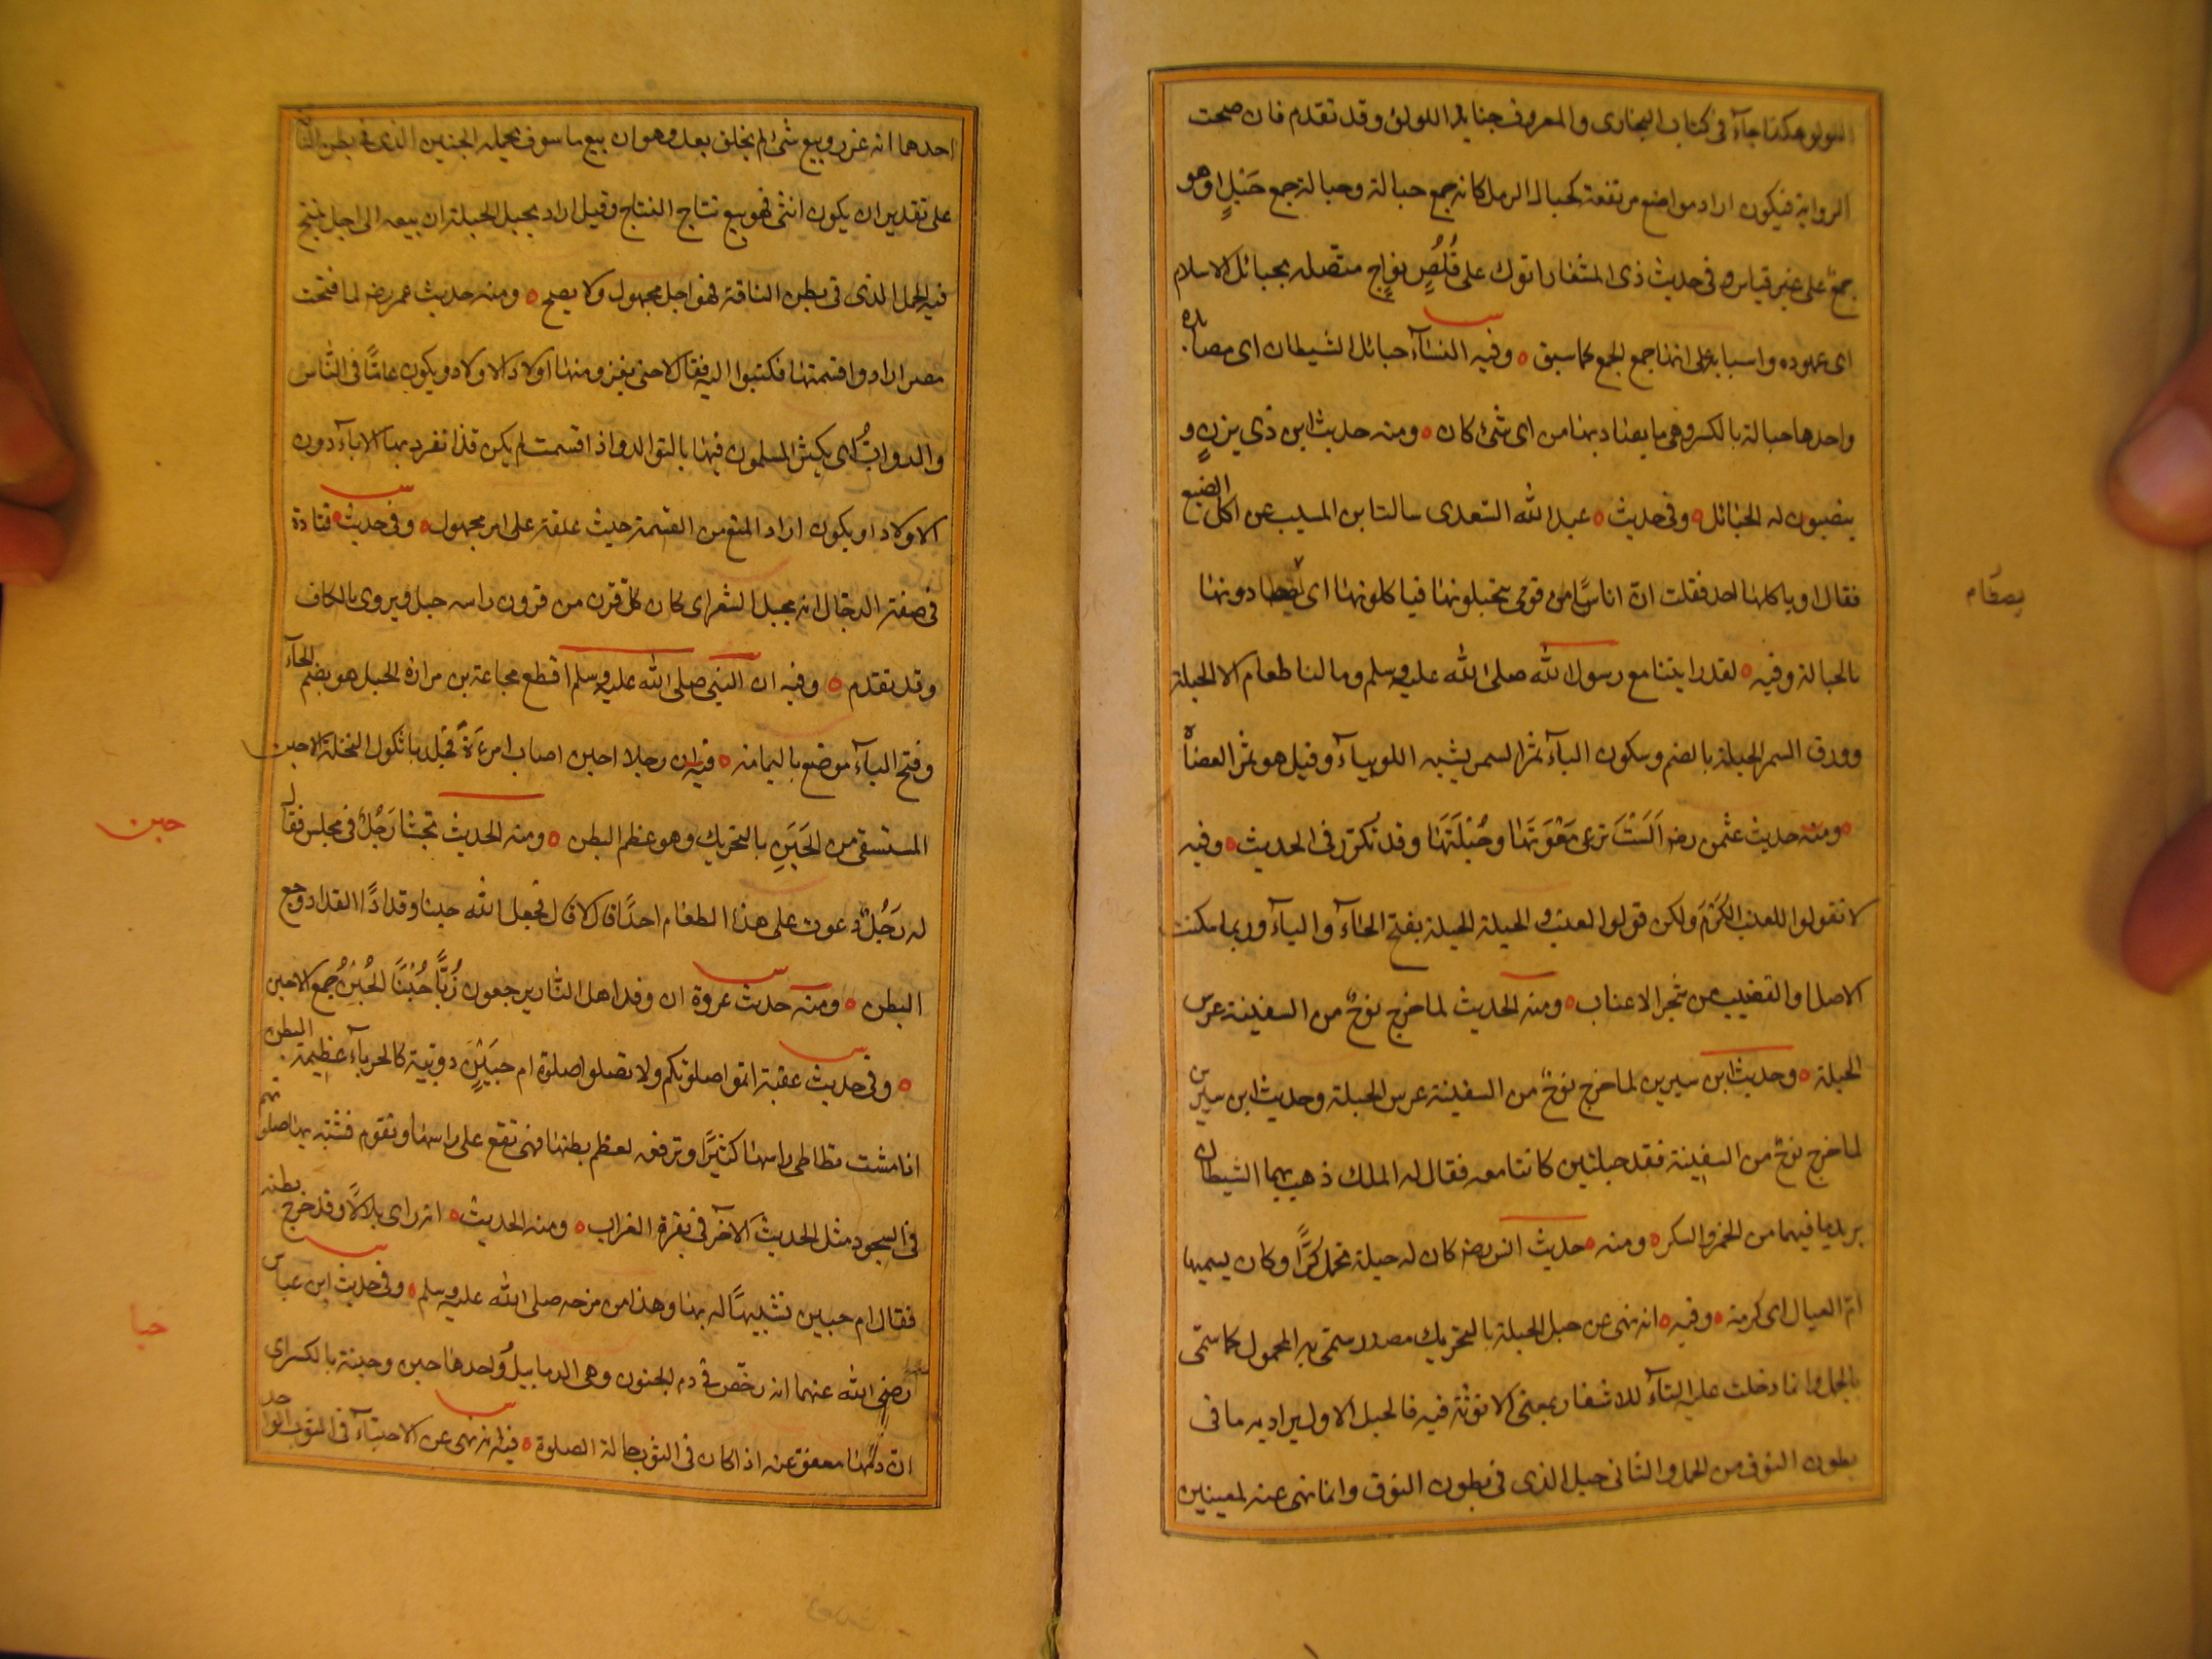 اللولو هكذا جاء فى كتاب البخارى والمعروف جنابذ اللولؤ وقد تقدم فان صحت
الرواية فيكون اراد مواضع مرتفعة كحبال الرمل كانه جمع حبالة وحبالة جمع حَبْلٍ او هو
جمع على غير قياس وفى حديث ذى المشغار اتوك على قُلُصٍ نواجٍ متصله بحبائل الاسلام
اى عهوده واسبابه على انها جمع الجمع كما سبق ه وفيه النساء حبائل الشيطان اى مصايده
واحدها حبالة بالكسر وهى ما يصاد بها من اى شئ كان ه ومنه حديث ابن ذى يزنٍ و
ينصبون له الحبائل ه وفى حديث ه عبد الله السعدى سالت ابن المسيب عن اكل الضبع
فقال او ياكلها احد فقلت انّ اناسًا من قومى يتحبلونها فياكلونها اى يصطادونها
بالحبالة وفيه ه لقد رايتنا مع رسول الله صلى الله عليه وسلم وما لنا طعام الا الحبلة
وورق السمر الحبلة بالضم وسكون الباء ثمر السمر يشبه اللوبياء وقيل هو ثمر العضاه
ه ومنه حديث عثمن رضى اَلَسْتَ ترعى مَعْوَتَها وحُبْلَتَهَا وقد تكرّر فى الحديث ه وفيه
لا تقولوا للعنب الكَرْمَ ولكن قولوا العنب والحبلة الحبلة بفتح الحاء والباء وربما سكنت
الاصل او القضيب من شجر الاعناب ه ومنه الحديث لما خرج نوحٌ من السفينة غرس
الحبلة ه وحديث ابن سيرين لما خرج نوحٌ من السفينة غرس الحبلة وحديث ابن سيرين
لما خرج نوحٌ من السفينة فقد حبلتين كانتا معه فقال له الملك ذهب بهما الشيطان
يريد ما فيهما من الخمر والسكر ه ومنه ه حديث انس رضى كان له حبلة تحمل كرًّا وكان يسميها
امّ العيال اى كرمة ه وفيه ه انه نهى عن حبل الحبلة بالتحريك مصدر سمّى به المحمول كما سمّى
بالحمل وانما دخلت عليه التاء للاشعار بمعنى الانوثة فيه فالحبل الاول يراد به ما فى
بطون النوق من الحمل والثانى حبل الذى فى بطون النوق وانما نهى عنه لمعنيين
يصطام
احدهما انه غرر وبيع شئ لم يخلق بعد وهو ان بيع ما سوف يحمله الجنين الذى فى بطن الناقة
على تقدير ان يكون انثى فهو بيع نتاج النتاج وقيل اراد بحبل الحبلة ان يبيعه الى اجل ينتج
فيه الحمل الذى فى بطن الناقة فهو اجل مجهول ولا يصح ه ومنه حديث عمر رضى لما فتحت
مصر ارادوا قسمتها فكتبوا اليه فقال لا حتى يغزو منها اولاد الاولاد ويكون عامًّا فى النّاس
والدوابُ اى يكثر المسلمون فيها بالتوالد واذا قسمت لم يكن قد انفرد بها الاباء دون
الاولاد او يكون اراد المنع من القسمة حيث علقه على امر مجهول ه وفى حديث ه قتادة
فى صفة الدجال انه محبل الشعر اى كان كل قرن من قرون راسه حبل ويروى بالكاف
وقد تقدم ه وفيه ان النبى صلى الله عليه وسلم اقطع مجاعة بن مرارة الحبل هو بضم الحاء
وفتح الباء موضع باليمامة ه فيه ان رجلا احبن اصاب امرءَةً فجُلِد باثكول النخلة الاحبن
المستسقى من الحَبَنِ بالتحريك وهو عظم البطن ه ومنه الحديث تجشا رَجُلٌ فى مجلس فقال
له رَجُلٌ دعوت على هذا الطعام احدًا قال لا قال فجعل الله حبنا وقدادًا القداد وجع
البطن ه ومنه حديث عروة ان وفد اهل النار يرجعون زُبًّا حُبْنًا الحُبْنُ جمع الاحبن
ه وفى حديث عقبة اتموا صلوتكم ولا تصلوا صلوة ام حبَيْنٍ دويبة كالحرباء عظيمة البطن
اذا مشت تطاطى راسها كثيرًا وترفعه لعظم بطنها فهى تقع على راسها وتقوم فشبّه بها صلوتهم
فى السجود مثل الحديث الآخر فى نقرة الغراب ه ومنه الحديث ه انه راى بلالاً وقد خرج بطنه
فقال ام حبين تشبيهًا له بها وهذا من مزحه صلى الله عليه وسلم ه وفى حديث ابن عباس
رضى الله عنهما انه رخّص فى دم الحبون وهى الدمابيلُ واحدها حبن وحبنة بالكسر اى
انّ دمها معفوّ عنه اذا كان فى الثوب حالة الصلوة ه فيه انه نهى عن الاحتباء فى الثوب الواحد
حبن
حبا